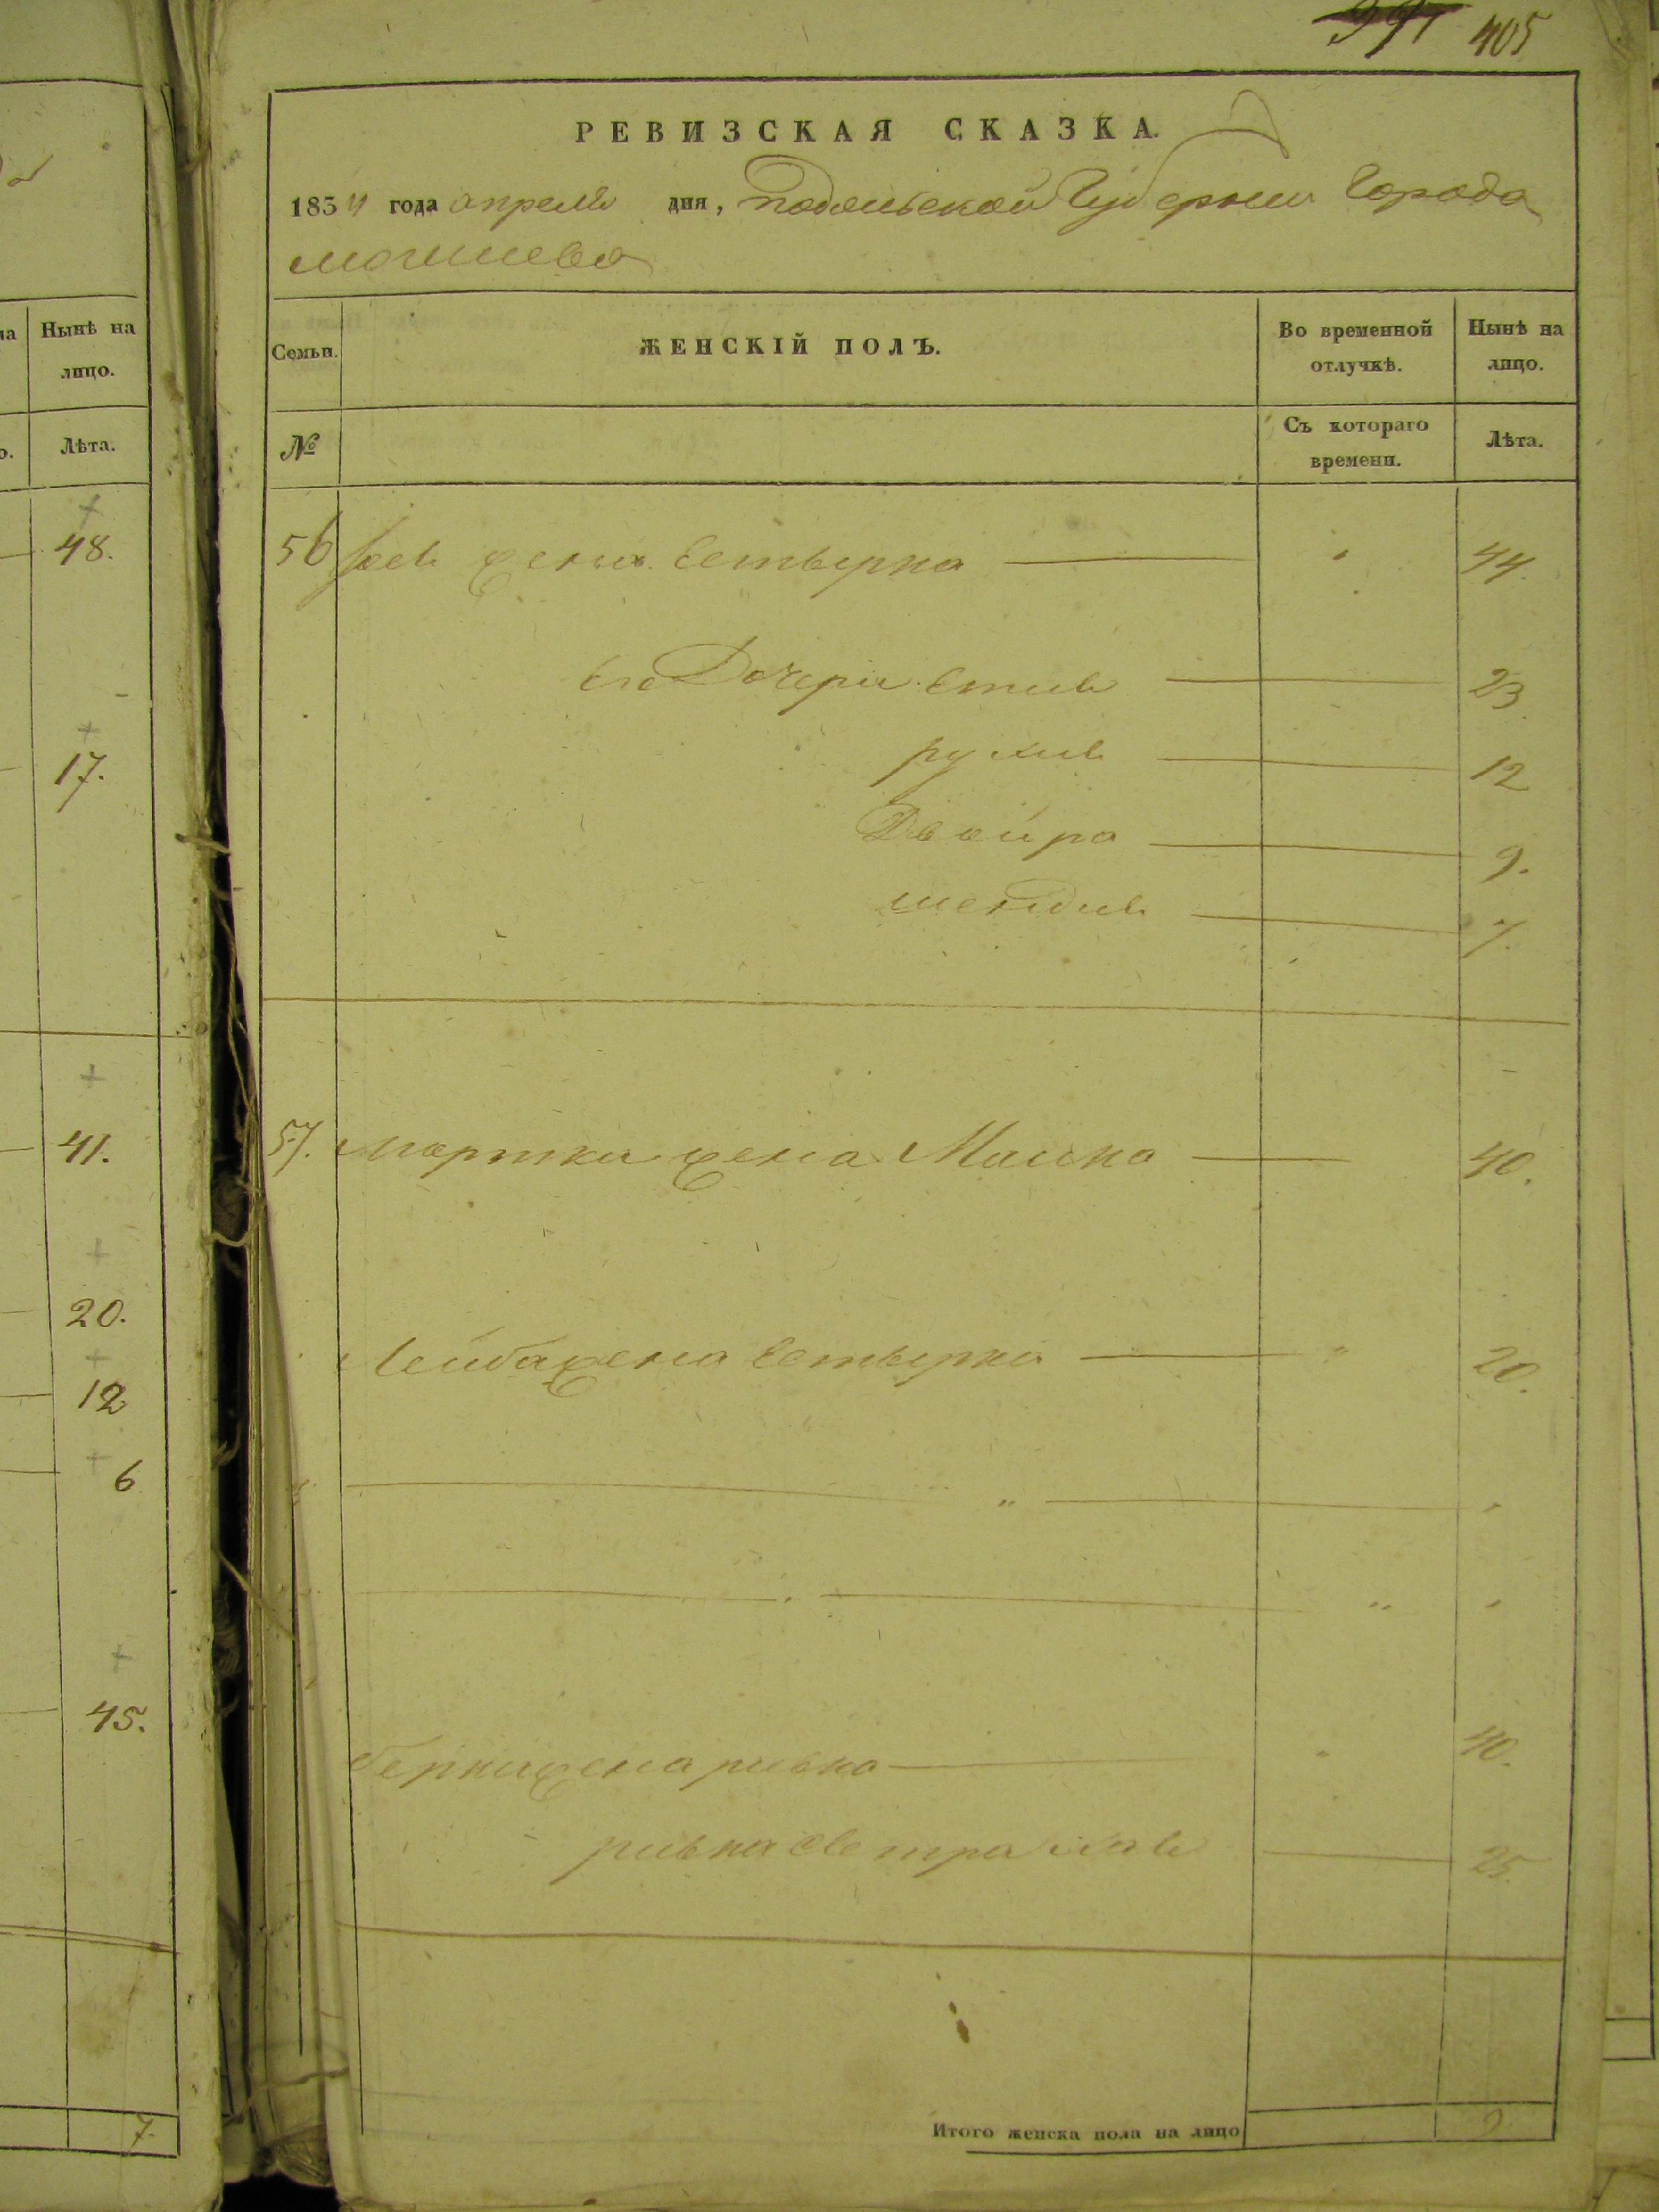 397 405
РЕВИЗСКАЯ СКАЗКА.
1854 года апреля дня, Подольской Губернии Города
Могилева
Нынѣ на
лицо.
Лѣта.
48.
17.
41.
20.
12
6
45.
7.
Семьи.
ЖЕНСКІЙ ПОЛЪ.
Во временной
отлучкѣ.
Нынѣ на
лицо.
№
Съ котораго
времени.
Лѣта.
56 жена Естырка 44.
Его Дочери Етля 23.
рухля 12
Двойра 9.
шендля 7.
57. Мортки жена Малка 40.
Лейба жена Естырка 20.
Берка жена ривка 40.
ривка 25.
Итого женска пола на лицо 9